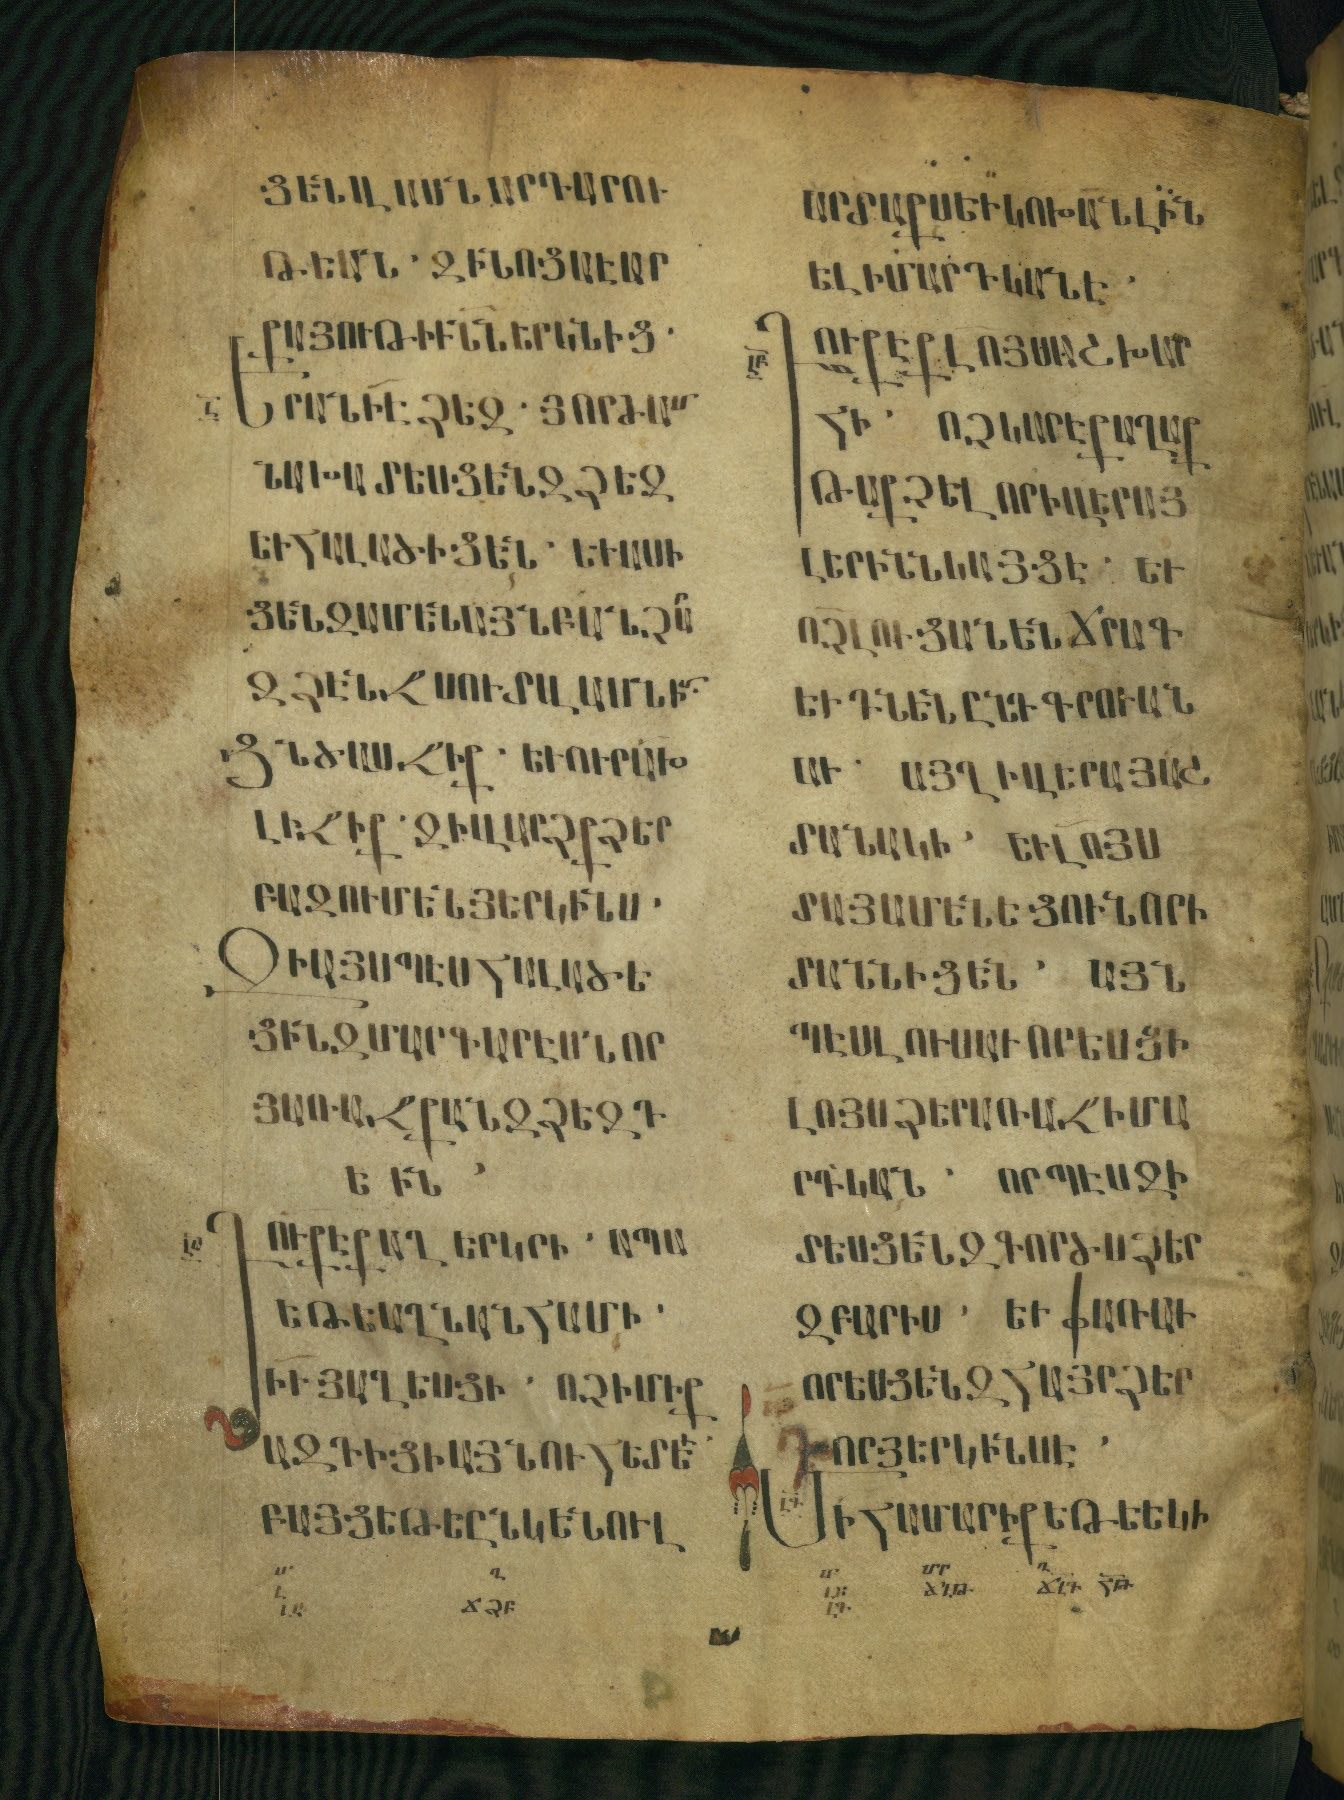 ՑԵՆ ՎԱՍՆ ԱՐԴԱՐՈՒ
ԹԵԱՆ · ԶԻ ՆՈՑԱ Է ԱՐ
ՔԱՅՈՒԹԻՒՆ ԵՐԿՆԻՑ ·
ԵՐԱՆԻ Է ՁԵԶ · ՅՈՐԺԱՄ
ՆԱԽԱՏԵՍՑԵՆ ԶՁԵԶ
ԵՒ ՀԱԼԱԾԻՑԵՆ · ԵՒ ԱՍԻ
ՑԵՆ ԶԱՄԵՆԱՅՆ ԲԱՆ ՉԱՐ
ԶՁԷՆՋ ՍՈՒՏ ՎԱՍՆ ԻՄ ·
ՑՆԾԱՍՋԻՔ · ԵՒ ՈՒՐԱԽ
ԼԵՋԻՔ · ԶԻ ՎԱՐՁՔ ՁԵՐ
ԲԱԶՈՒՄ ԵՆ ՅԵՐԿԻՆՍ ·
ԶԻ ԱՅՍՊԷՍ ՀԱԼԱԾԵ
ՑԻՆ ԶՄԱՐԳԱՐԷՍՆ ՈՐ
ՅԱՌԱՋ ՔԱՆ ԶՁԵԶ Է
Ե ԻՆ ·
ԴՈՒՔ ԷՔ ԱՂ ԵՐԿՐԻ · ԱՊԱ
ԵԹԵ ԱՂՆ ԱՆՀԱՄԻ ·
ԻՒ ՅԱՂԵՍՑԻ · ՈՉ ԻՄԻՔ
ԱԶԴԻՑԻ ԱՅՆՈՒՀԵՏԵ
ԲԱՅՑ ԵԹԵ ԸՆԿԵՆՈՒԼ
ԱՐՏԱՔՍ ԵՒ ԿՈԽԱՆ ԼԻՆ
ԵԼ Ի ՄԱՐԴԿԱՆԷ ·
ԴՈՒՔ ԷՔ ԼՈՅՍ ԱՇԽԱՐ
ՀԻ · ՈՉ ԿԱՐԷ ՔԱՂԱՔ
ԹԱՔՉԵԼ ՈՐ Ի ՎԵՐԱՅ
ԼԵՐԻՆ ԿԱՅՑԷ · ԵՒ
ՈՉ ԼՈՒՑԱՆԵՆ ՃՐԱԳ
ԵՒ ԴՆԵՆ ԸՆԴ ԳՐՈՒԱՆ
ԱՒ · ԱՅՂ Ի ՎԵՐԱՅ ԱՇ
ՏԱՆԱԿԻ · ԵՒ ԼՈՅՍ
ՏԱՅ ԱՄԵՆԵՑՈՒՆ ՈՐ Ի
ՏԱՆՆ ԻՑԵՆ · ԱՅՆ
ՊԷՍ ԼՈՒՍԱՒՈՐԵՍՑԻ
ԼՈՅՍ ՁԵՐ ԱՌԱՋԻ ՄԱ
ՐԴԿԱՆ · ՈՐՊԷՍԶԻ
ՏԵՍՑԵՆ ԶԳՈՐԾՍ ՁԵՐ
ԶԲԱՐԻՍ · ԵՒ ՓԱՌԱՒ
ՈՐԵՍՑԵՆ ԶՀԱՅՐ ՁԵՐ
ՈՐ ՅԵՐԿԻՆՍ Է ·
ՄԻ ՀԱՄԱՐԻՔ ԵԹԵ ԵԿԻ